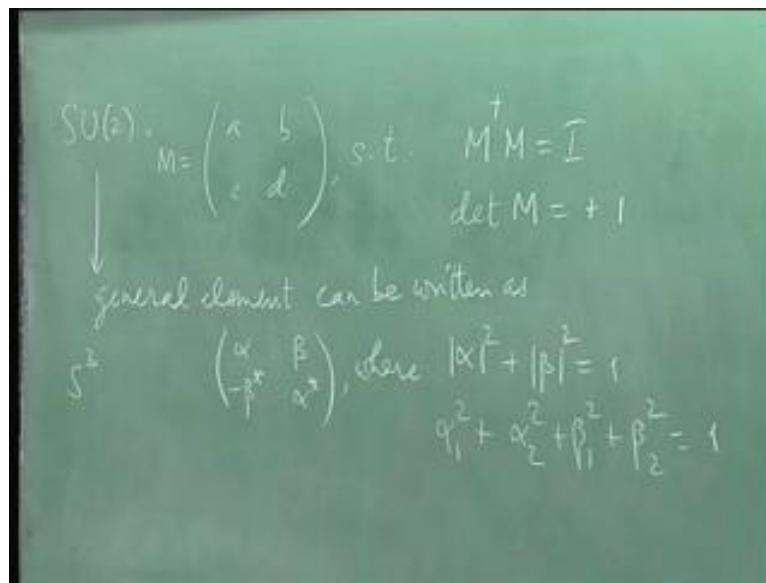 SU(2). M = ( a b ; c d. ), s.t. M†M = I
det M = + 1
general element can be written as
S³ ( α β ; -β* α* ), where |α|² + |β|² = 1
α₁² + α₂² + β₁² + β₂² = 1